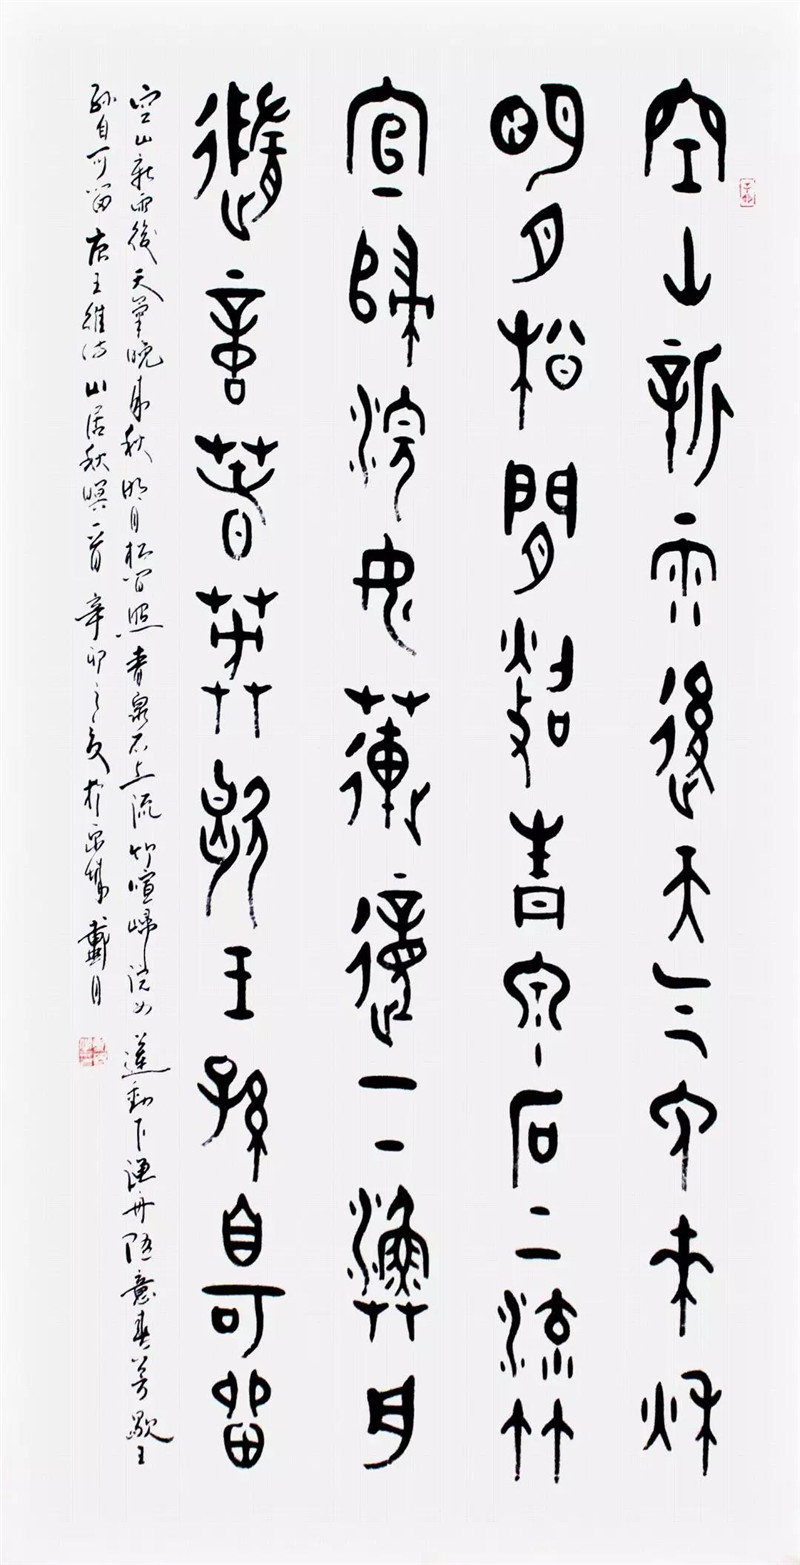 空山新雨後天气晚来秋
明月松間照青泉石上流竹
宣歸浣女蓮動下漁舟
隨意春芳歇王孫自可留
空山新雨後天氣晚来秋明月松間照青泉石上流竹喧歸浣女蓮動下漁舟隨意春芳歇王
孫自可留唐王維詩山居秋暝一首辛卯之夏於京 戴月